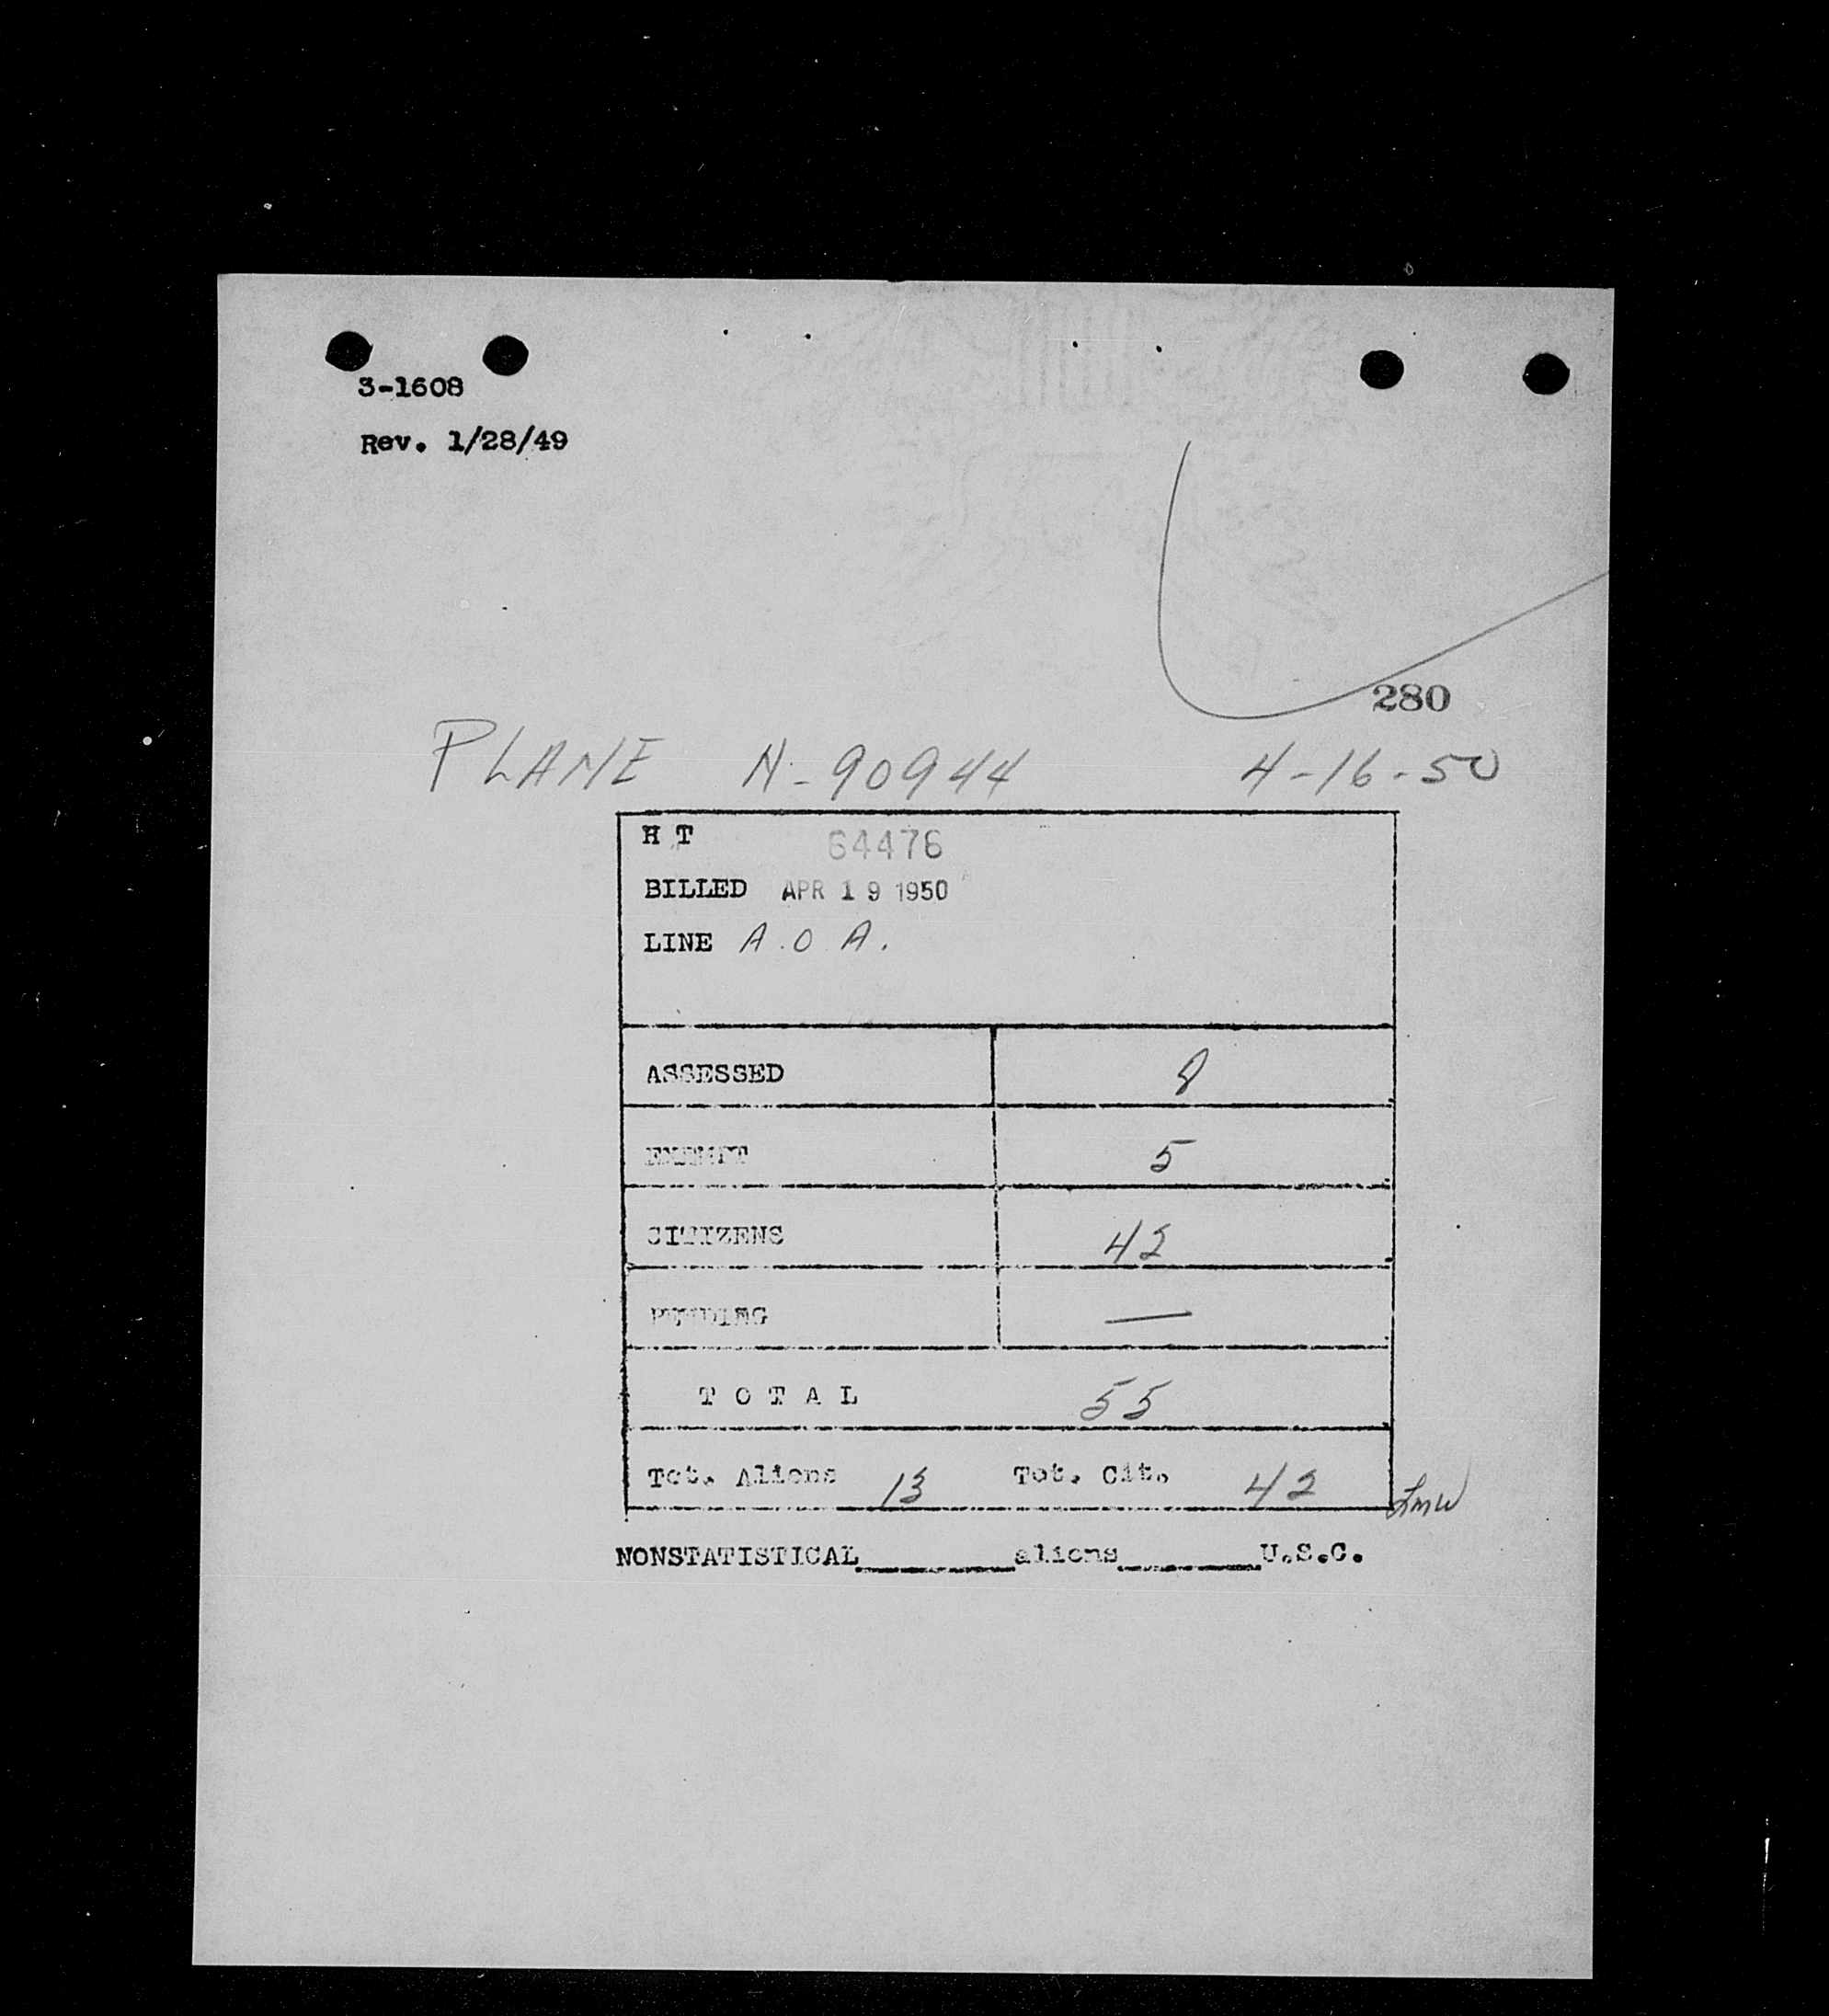 3-1608
Rev. 1/28/49
280
PLANE N-90944 4-16-50
H T 64476
BILLED APR 19 1950
LINE A.O.A.
ASSESSED 8
EXEMPT 5
CITIZENS 42
PENDING —
TOTAL 55
Tot. Aliens 13 Tot. Cit. 42 LMW
NONSTATISTICAL________aliens________U.S.C.